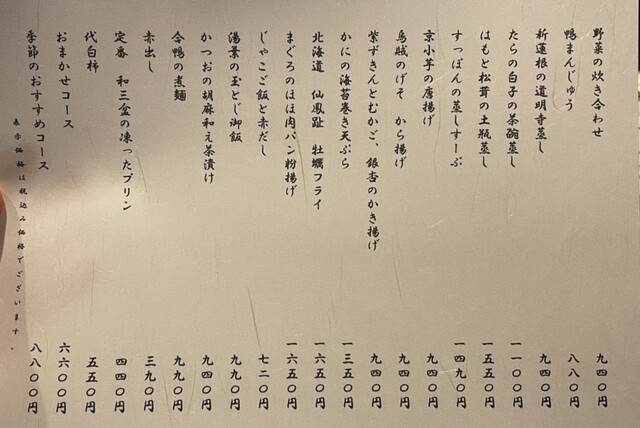 野菜の炊き合わせ 九四〇円
鴨まんじゅう 八八〇円
新蓮根の道明寺蒸し 九四〇円
たらの白子の茶碗蒸し 一一〇〇円
はもと松茸の土瓶蒸し 一五五〇円
すっぽんの蒸しすーぷ 一四九〇円
京小芋の唐揚げ 九四〇円
烏賊のげそ から揚げ 九四〇円
紫ずきんとむかご、銀杏のかき揚げ 九四〇円
かにの海苔巻き天ぷら 一三五〇円
北海道 仙鳳趾 牡蠣フライ 一六五〇円
まぐろのほほ肉パン粉揚げ 一六五〇円
じゃこご飯と赤だし 七二〇円
湯葉の玉とじ御飯 九九〇円
かつおの胡麻和え茶漬け 九四〇円
合鴨の煮麺 九九〇円
赤出し 三九〇円
定番 和三盆の凍ったプリン 四四〇円
代白柿 五五〇円
おまかせコース 六六〇〇円
季節のおすすめコース 八八〇〇円
表示価格は税込み価格でございます。